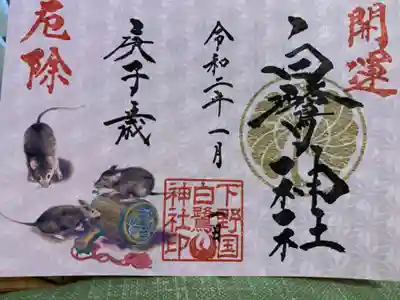 開運
白鷺神社
令和二年一月
庚子歳
厄除
下野国
白鷺
神社印
一月